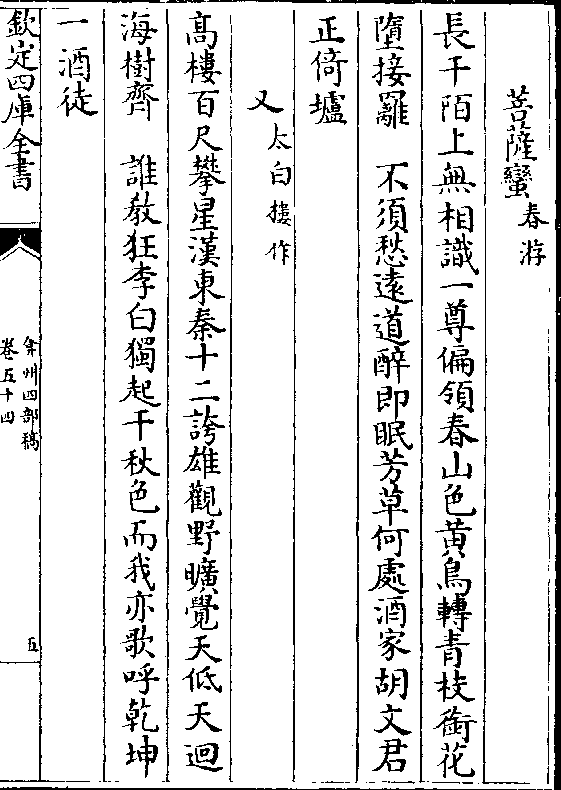 菩薩蠻春游
長干陌上無相識一尊偏領春山色黄鳥轉青枝銜花
墮接䍦　不須愁遠道醉即眠芳草何處酒家胡文君
正倚壚
又太白樓作
髙樓百尺攀星漢東秦十二誇雄觀野曠覺天低天迴
海樹齊　誰教狂李白獨起千秋色而我亦歌呼乾坤
一酒徒
欽定四庫全書
弇州四部稿
卷五十四
五